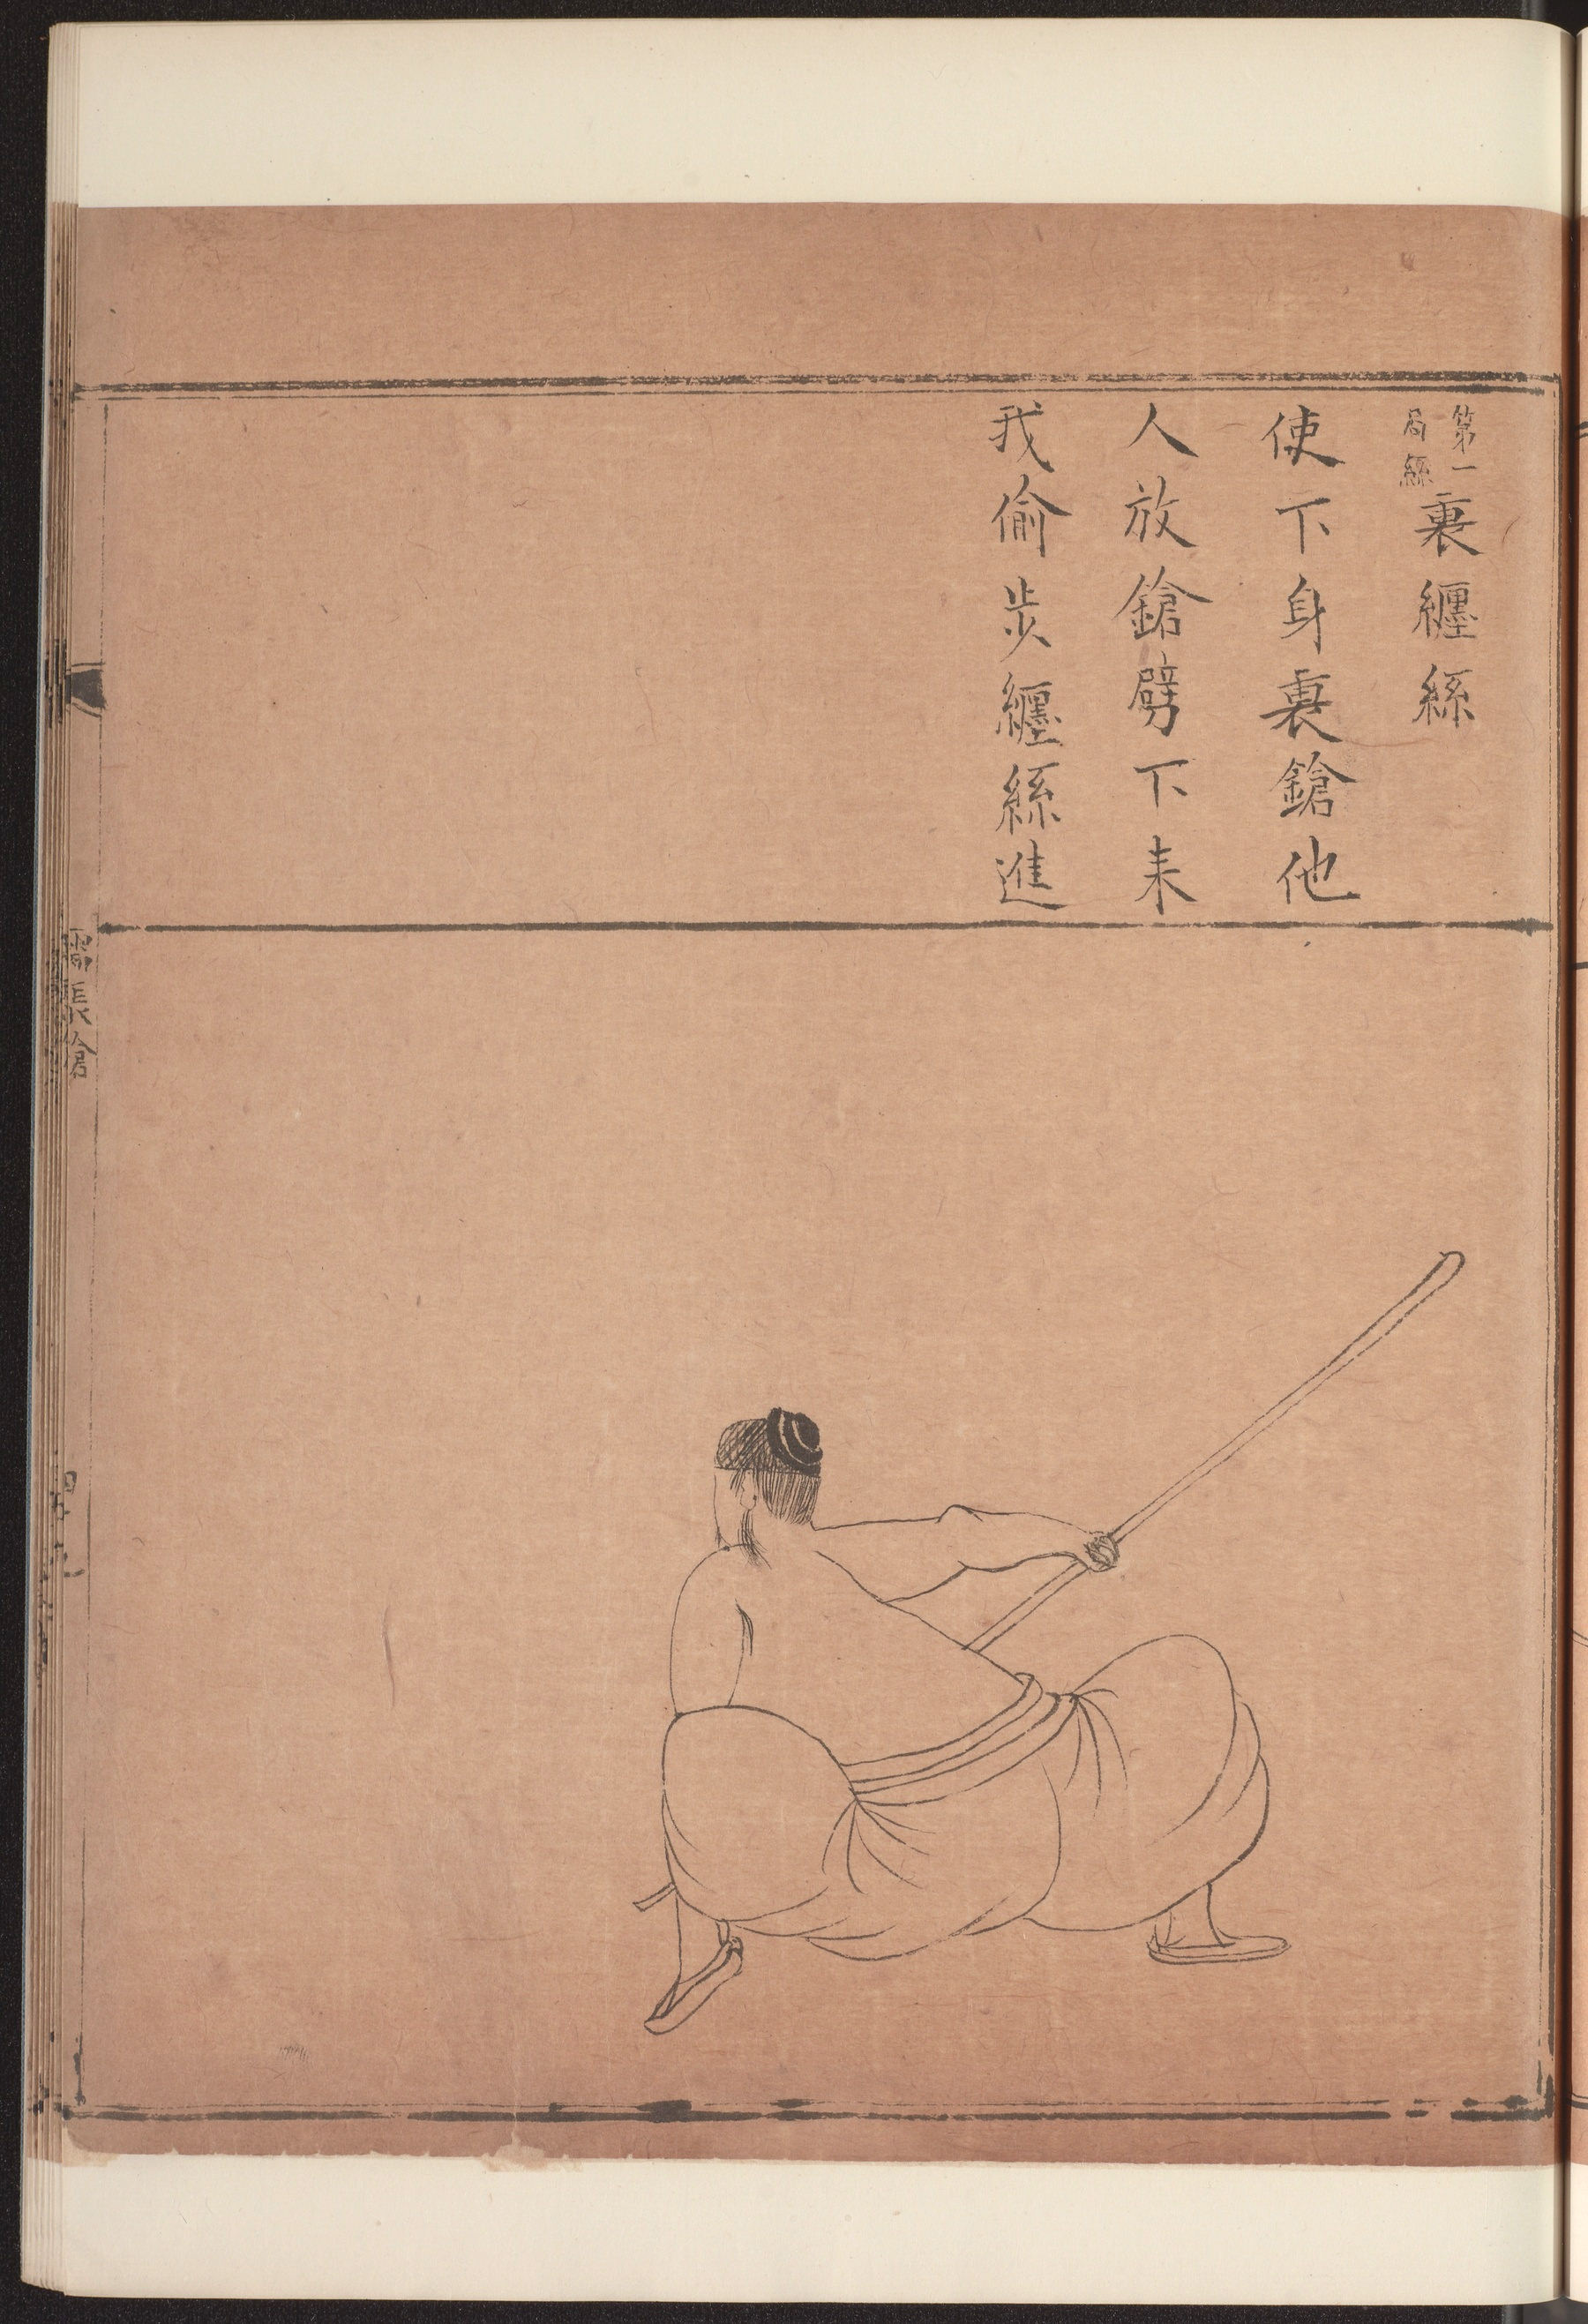 第一
局
裏纏絲
使下身裏鎗他
人放鎗劈下来
我偷步纏絲進
長鎗